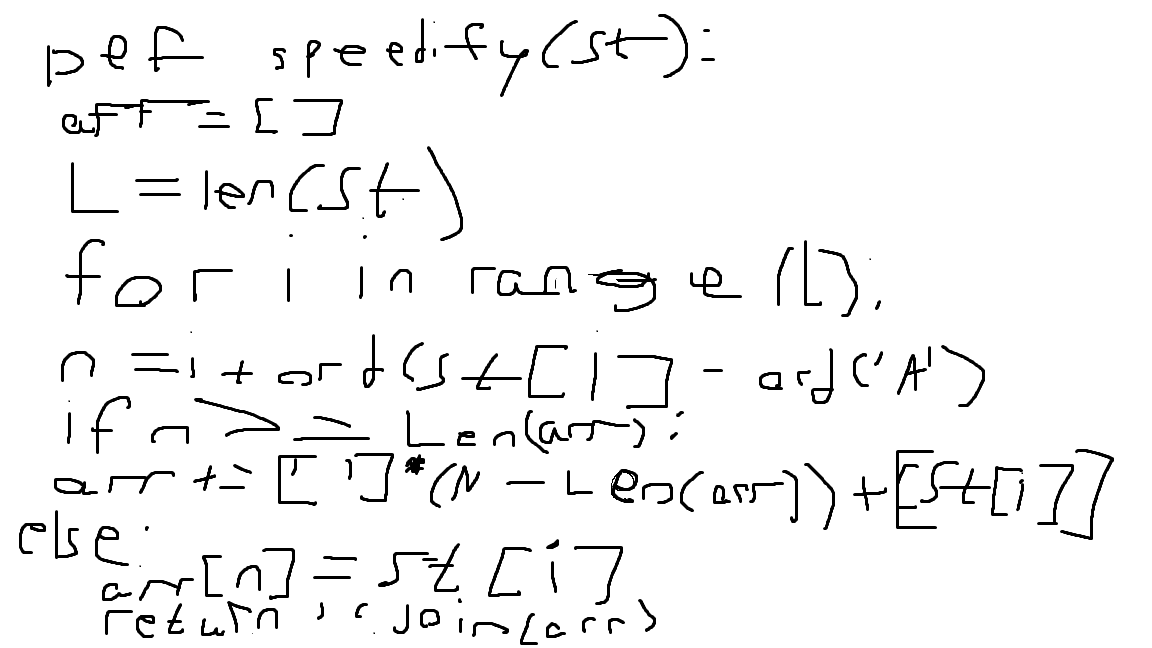 def speedify(st):
arr = []
L = len(st)
for i in range(L):
n = i + ord(st[i] - ord('A')
if n >= Len(arr):
arr += [' ']*(N - Len(arr)) + [st[i]]
else:
arr[n] = st[i]
return ''.join(arr)